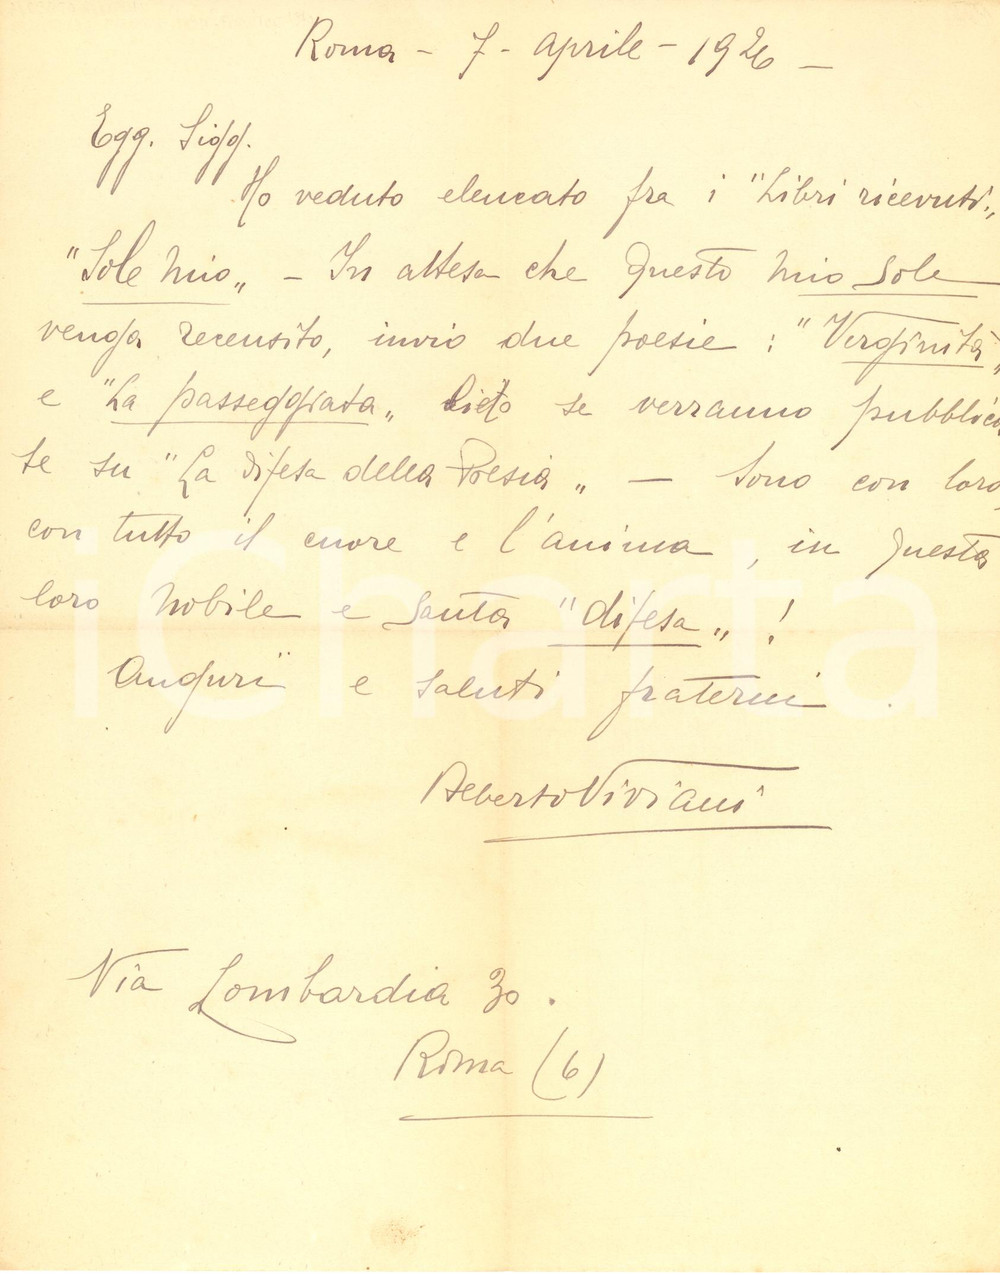 Roma - 7 - aprile - 1926 -
Egg. Sigg.
Ho veduto elencato fra i "Libri ricevuti„
"Sole mio„ - In attesa che questo mio sole
venga recensito, invio due poesie : "Verginità„
e "La passeggiata„ lieto se verranno pubblica
te su "La difesa della Poesia„ - Sono con loro,
con tutto il cuore e l'anima, in questa
loro nobile e santa "difesa„ !
Auguri e saluti fraterni .
Alberto Viviani
Via Lombardia 30 .
Roma (6)
iCharta